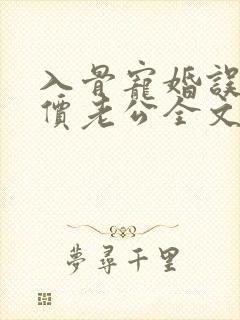 入骨寵婚誤
價老公全文
夢尋千里